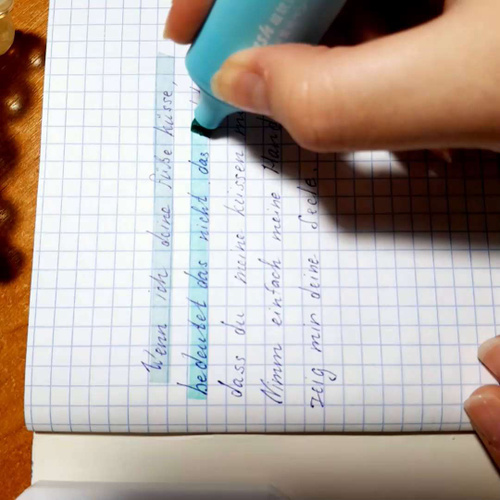 Wenn ich deine Füße küsse,
bedeutet das nicht das
dass du meine küssen
Nimm einfach meine
zeig mir deine Seele.